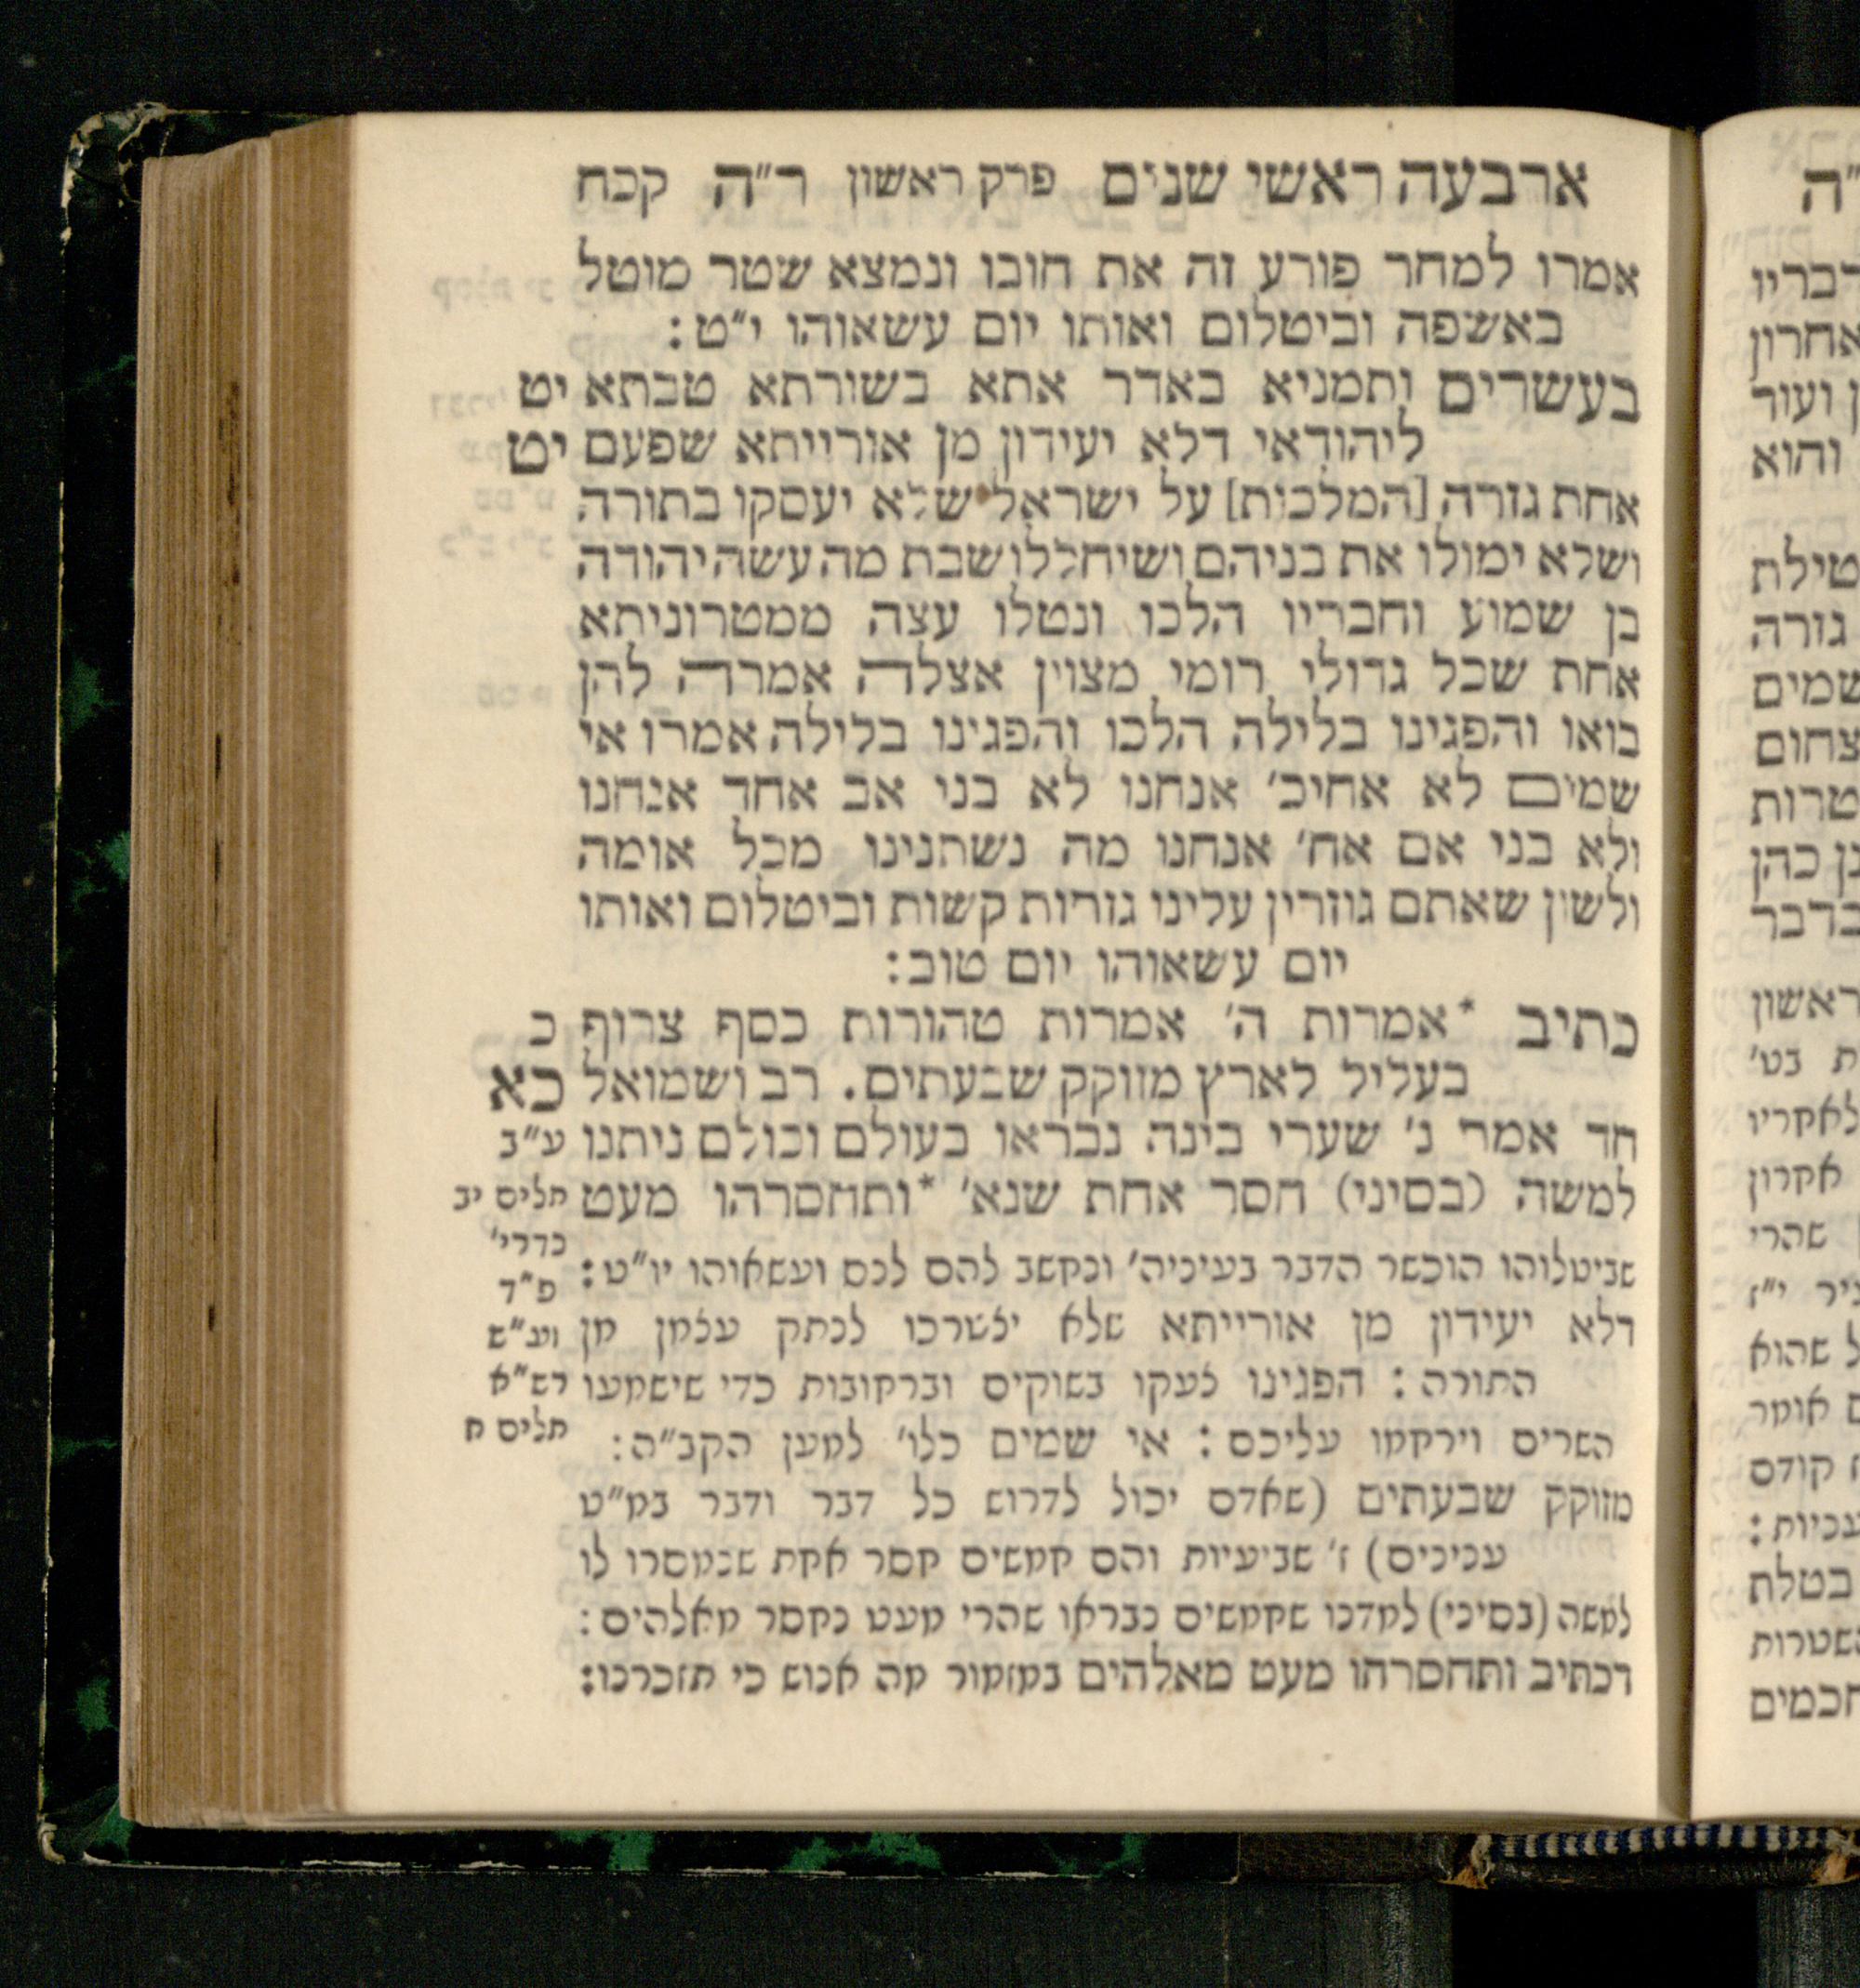 ארבעה ראשי שנים פרק ראשון ר״ה קכח
אמרו למחר פורע זה את חובו ונמצא שטר מוטל
באשפה וביטלום ואותו יום עשאוהו י״ט:
בעשרים ותמניא באדר אתא בשורתא טבתא יט
ליהודאי דלא יעידון מן אורייתא שפעם יט
אחת גזרה [המלכות] על ישראל שלא יעסקו בתורה
ושלא ימולו את בניהם ושיחללו שבת מה עשה יהודה
בן שמוע וחבריו הלכו ונטלו עצה ממטרוניתא
אחת שכל גדולי רומי מצוין אצלה אמרה להן
בואו והפגינו בלילה הלכו והפגינו בלילה אמרו אי
שמים לא אחיכ׳ אנחנו לא בני אב אחד אנחנו
ולא בני אם אח׳ אנחנו מה נשתנינו מכל אומה
ולשון שאתם גוזרין עלינו גזרות קשות וביטלום ואותו
יום עשאוהו יום טוב:
כתיב *אמרות ה׳ אמרות טהורות כסף צרוף כ
בעליל לארץ מזוקק שבעתים. רב ושמואל כא
חד אמר נ׳ שערי בינה נבראו בעולם וכולם ניתנו ע״ב
למשה (בסיני) חסר אחת שנא׳ *ותחסרהו מעט תלים יב
שביטלוהו הוכשר הדבר בעיניה׳ ונחשב להם לנס ועשאוהו יו״ט: נדרי׳
פ״ד
דלא יעידון מן אורייתא שלא יצטרכו לנתק עצמן מן וע״ש
התורה: הפגינו צעקו בשוקים וברחובות כדי שישמעו רש״א
השרים וירחמו עליכם: אי שמים כלו׳ למען הקב״ה: תלים ח
מזוקק שבעתים (שאדם יכול לדרוש כל דבר ודבר במ״ט
ענינים) ז׳ שביעיות והם חמשים חסר אחת שנמסרו לו
למשה (בסיני) למדנו שחמשים נבראו שהרי מעט נחסר מאלהים:
דכתיב ותחסרהו מעט מאלהים במזמור מה אנוש כי תזכרנו: